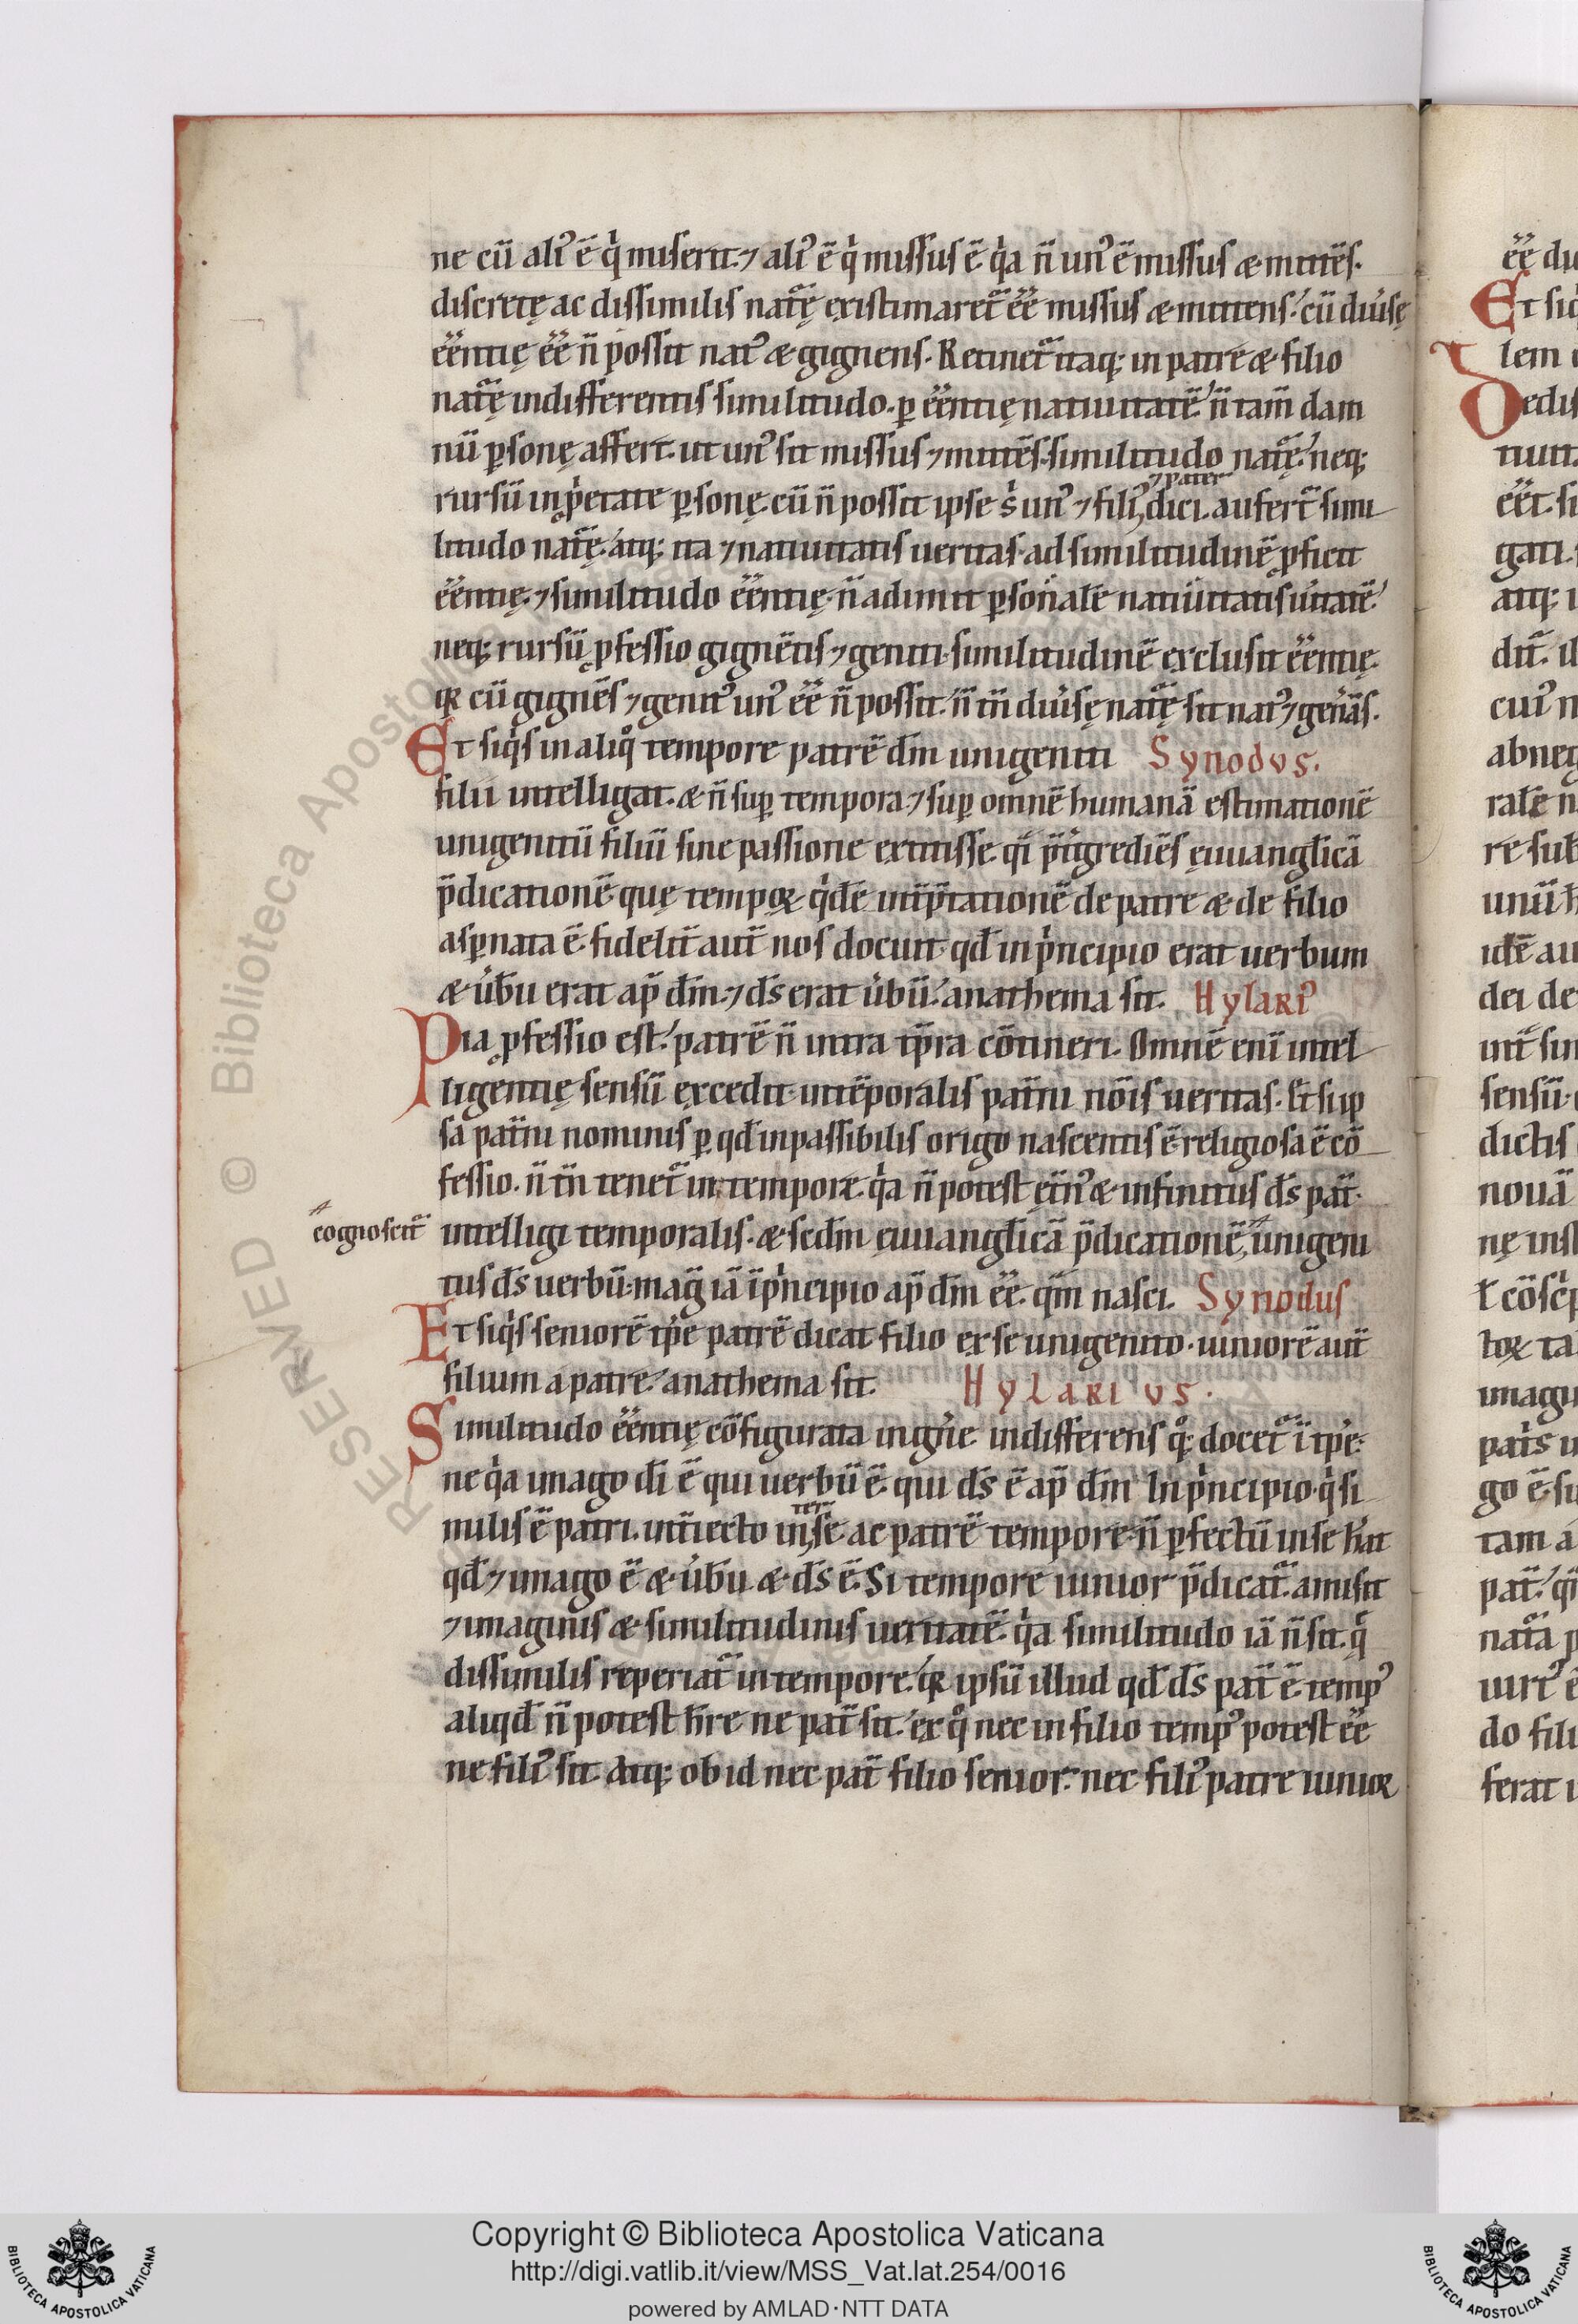 ne cū aliꝰ ē q̇ miserit. ⁊ aliꝰ ē q̇ missus ē. q̇a n̄ unꝰ ē missus & mittēs.
discretę ac dissimilis nat̄ę existimaret᷑ ēē missus & mittens. cū diu̇sę
ēēntię ēē n̄ possit natꝰ & gignens. Retinet᷑ itaq; in patre & filio
nat̄ę indifferentis similitudo. ꝑ ēēntię natiuitatē. n̄ tam̄ dam
nū ꝑsonę affert. ut unꝰ sit missus ⁊ mittēs. similitudo nat̄ę. neq;
rursū inṗ̣etate ꝑsonę. cū n̄ possit ipse ṡ unꝰ ⁊ filiꝰ ⁊ pater dici. aufert᷑ simi
litudo nat̄ę. atq; ita ⁊ natiuitatis ueritas ad similitudinē ꝓficit
ēēntię. ⁊ similitudo ēēntię. n̄ adimit ꝑsonalē natiuitatis u̇itatē.
neq; rursū ꝓfessio gignētis ⁊ geniti. similitudinē exclusit ēēntię.
qꝛ cū gignēs ⁊ genitꝰ unꝰ ēē n̄ possit. n̄ tn̄ diu̇sę nat̄ę sit natꝰ ⁊ gen̄ās.
Et siq̇s in aliq̊ tempore patrē dm̄ unigeniti Synodvs.
filii intelligat. & n̄ suꝑ tempora. ⁊ suꝑ omnē humanā estimationē
unigenitū filiū sine passione extitisse. qͥ p̄tigrediēs ęuuanglicā
p̄dicationē. quę tempoꝝ q̇dē int̄p̄tationē de patre & de filio
asꝑnata ē. fidelit̄ aut̄ nos docuit qd̄ in pṙncipio erat uerbum
& u̇bū erat ap̄ dm̄. ⁊ ds̄ erat u̇bū. anathema sit. Hylariꝰ
Pia ꝓfessio est. patrē n̄ intra tp̄ra cōtineri. Omnē enī intel
ligentię sensū excedit. intēporalis pat̄ni nōis ueritas. Et si ip
sa pat̄ni nominis ꝑ qd̄ inpassibilis origo nascentis ē. religiosa ē cō
fessio. n̄ tn̄ tenet᷑ in tempore. q̇a n̄ potest ęt̄nꝰ & infinitus ds̄ pat̄.
cognoscit᷑ intelligi temporalis. & scdm̄ ęuuanglicā p̄dicationē, unigeni
tus ds̄ uerbū. mag̃ iā ī pṙncipio ap̄ dm̄ ēē. qm̄ nasci. Synodus
Et siq̇s seniorē tp̄e patrē dicat filio ex se unigenito. iuniorē aut̄
filium a patre. anathema sit. Hylarivs.
Similitudo ēēntię cōfigurata in gn̄e. indifferens q̊q; docet᷑ ī tp̄e.
ne q̇a imago dī ē qui uerbū ē. qui ds̄ ē ap̄ dm̄ In pṙncipio. q̇ si
milis ē patri. int̄iecto inter se ac patrē tempore. n̄ ꝑfectū in se h̄at
qd̄ ⁊ imago ē & u̇bū & ds̄ ē. Si tempore iunior p̄dicat᷑. amisit
⁊ imaginis & similitudinis ueritatē. q̇a similitudo iā n̄ sit. q̄
dissimilis reperiat᷑ in tempore. qꝛ ipsū illud qd̄ ds̄ pat̄ ē. tempꝰ
aliqd̄ n̄ potest h̄re ne pat̄ sit. ex q̊ nec in filio tempꝰ potest ēē
ne filiꝰ sit. Atq; ob id nec pat̄ filio senior. nec filiꝰ patre iunioꝛ
RESERVED © Biblioteca Apostolica
Copyright © Biblioteca Apostolica Vaticana
http://digi.vatlib.it/view/MSS_Vat.lat.254/0016
powered by AMLAD·NTT DATA
BIBLIOTECA APOSTOLICA VATICANA
BIBLIOTECA APOSTOLICA VATICANA